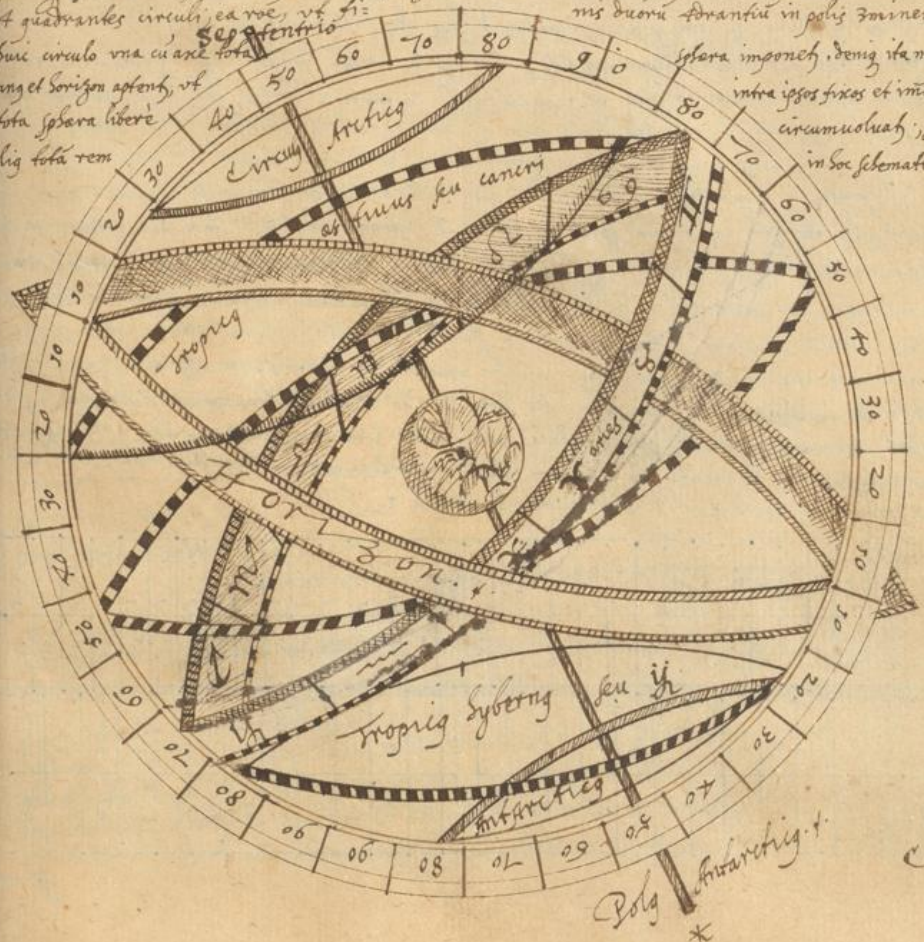 t quadrantes circuli, ea roe, vt fi=
huic circulo vna cu axe tota
ang et horizon aptent, vt
tota sphæra liberè
lig totā rem
nis duorū 4drantiū in polis
sphæra imponet, deniq ita
intra ipsos fixos et
circumvoluat,
in hoc schemate
septentrio
80
90
80
70
60
50
40
30
20
10
10
20
30
40
50
60
70
80
90
90
80
70
60
50
40
30
20
10
10
20
30
40
50
60
70
Circuƺ Arcticƺ
æstiuus seu cancri
♋
♌
♊
Tropicƺ
♍
♉
♎
♈ aries
Horizon.
♓
♏
♒
♑
Tropicƺ hybernƺ seu ♑
Antarcticƺ
Polƺ Antarcticƺ